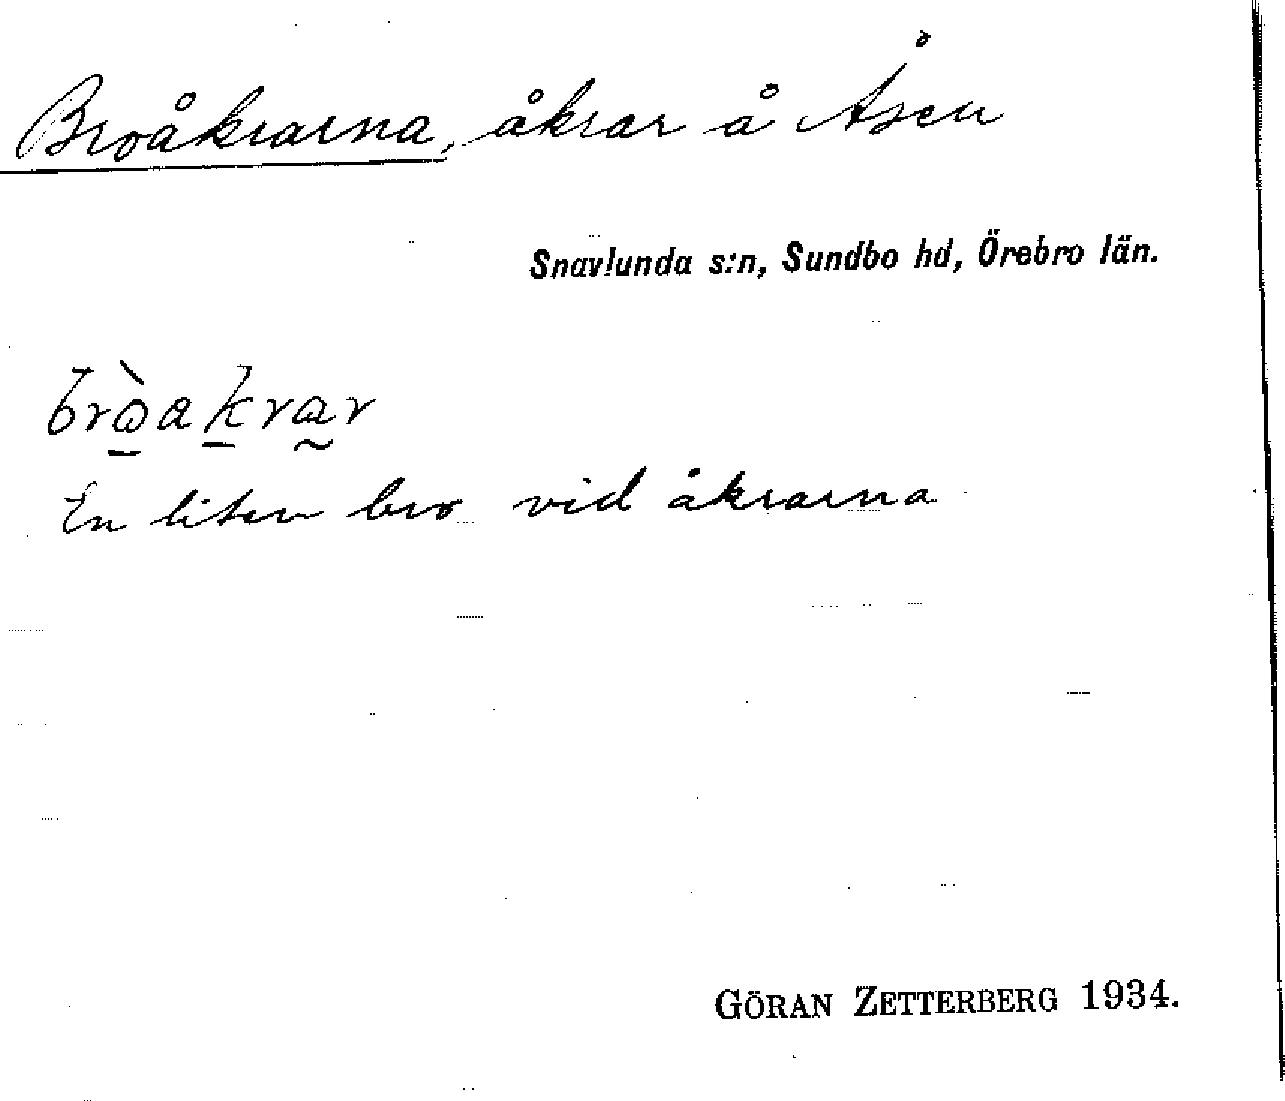 Broåkrarna, åkrar å Åsen
Snavlunda s:n, Sundbo hd, Örebro län.
bròakrar
En liten bro vid åkrarna
GÖRAN ZETTERBERG 1934.